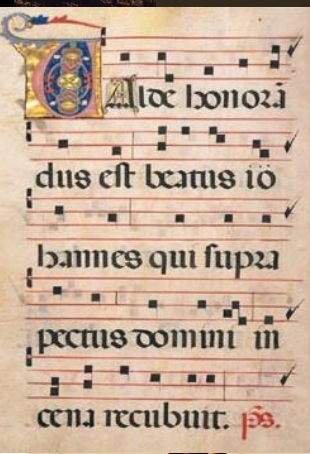 VAlde honorā
dus est beatus iō
hannes qui supra
pectus domini in
cena recubuit. p̄s.